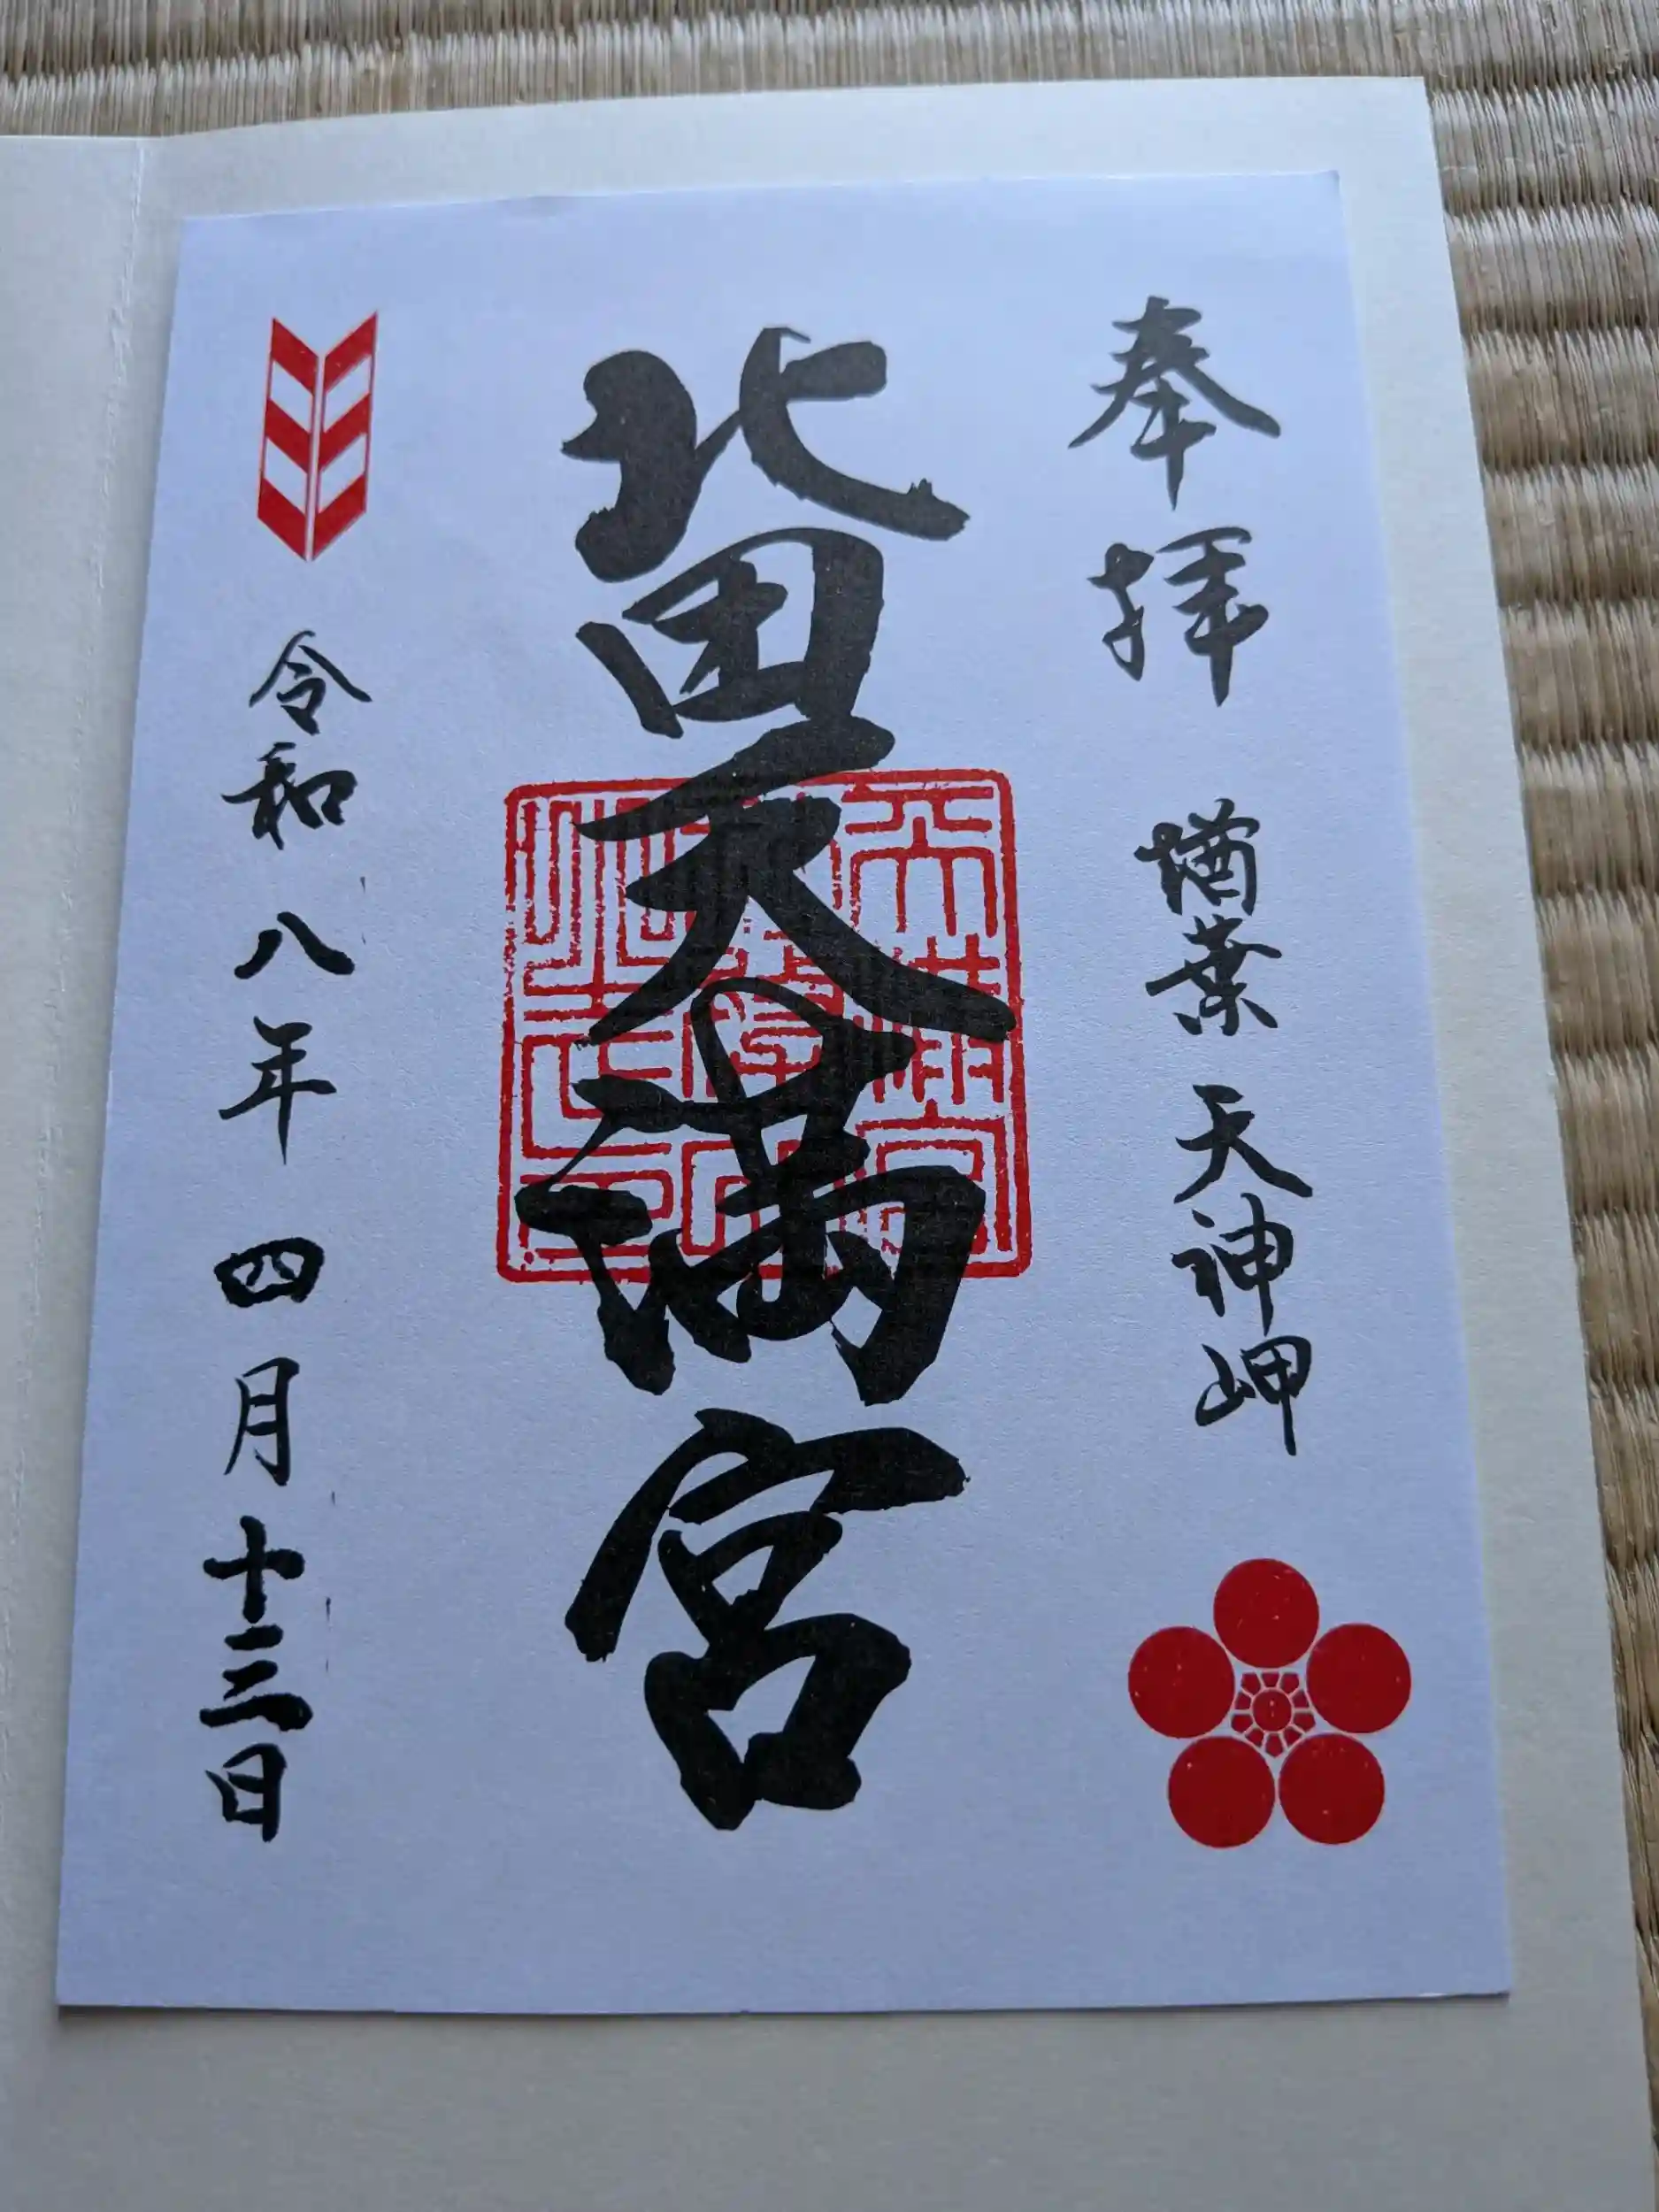 奉拝
楢葉 天神岬
北田天満宮
令和八年 四月十三日